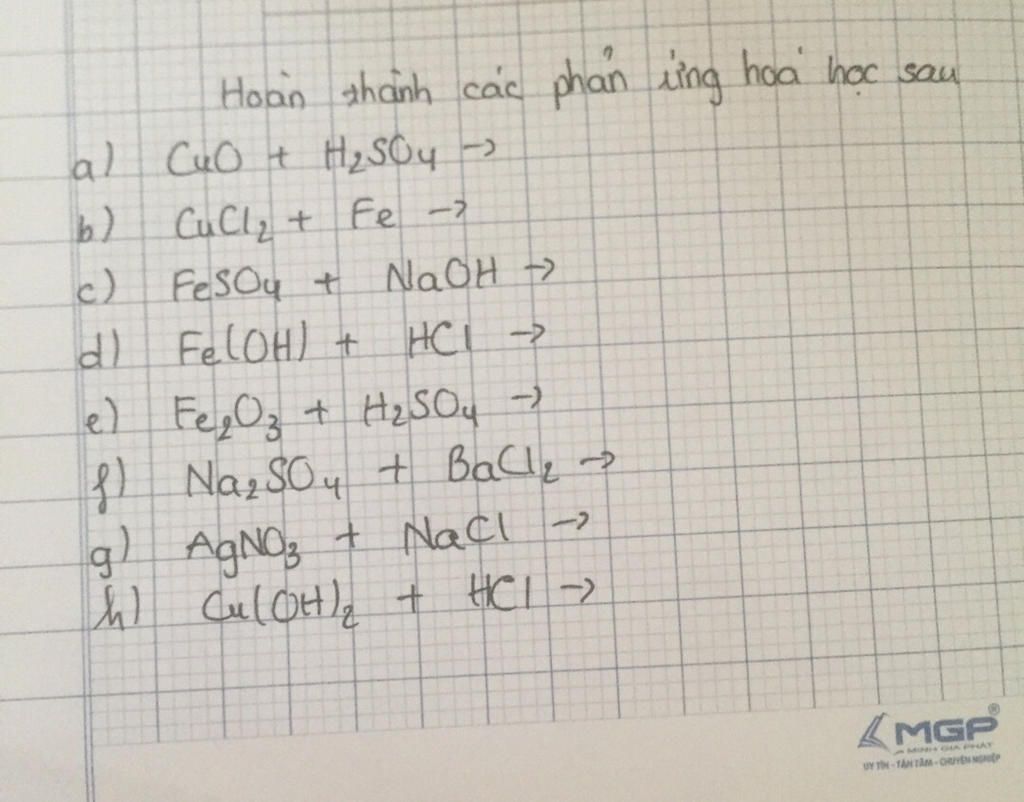 Hoàn thành các phản ứng hoá học sau
a) CuO + H₂SO₄ →
b) CuCl₂ + Fe →
c) FeSO₄ + NaOH →
d) Fe(OH) + HCl →
e) Fe₂O₃ + H₂SO₄ →
f) Na₂SO₄ + BaCl₂ →
g) AgNO₃ + NaCl →
h) Cu(OH)₂ + HCl →
MGP®
MINH GIA PHÁT
UY TÍN - TẬN TÂM - CHUYÊN NGHIỆP